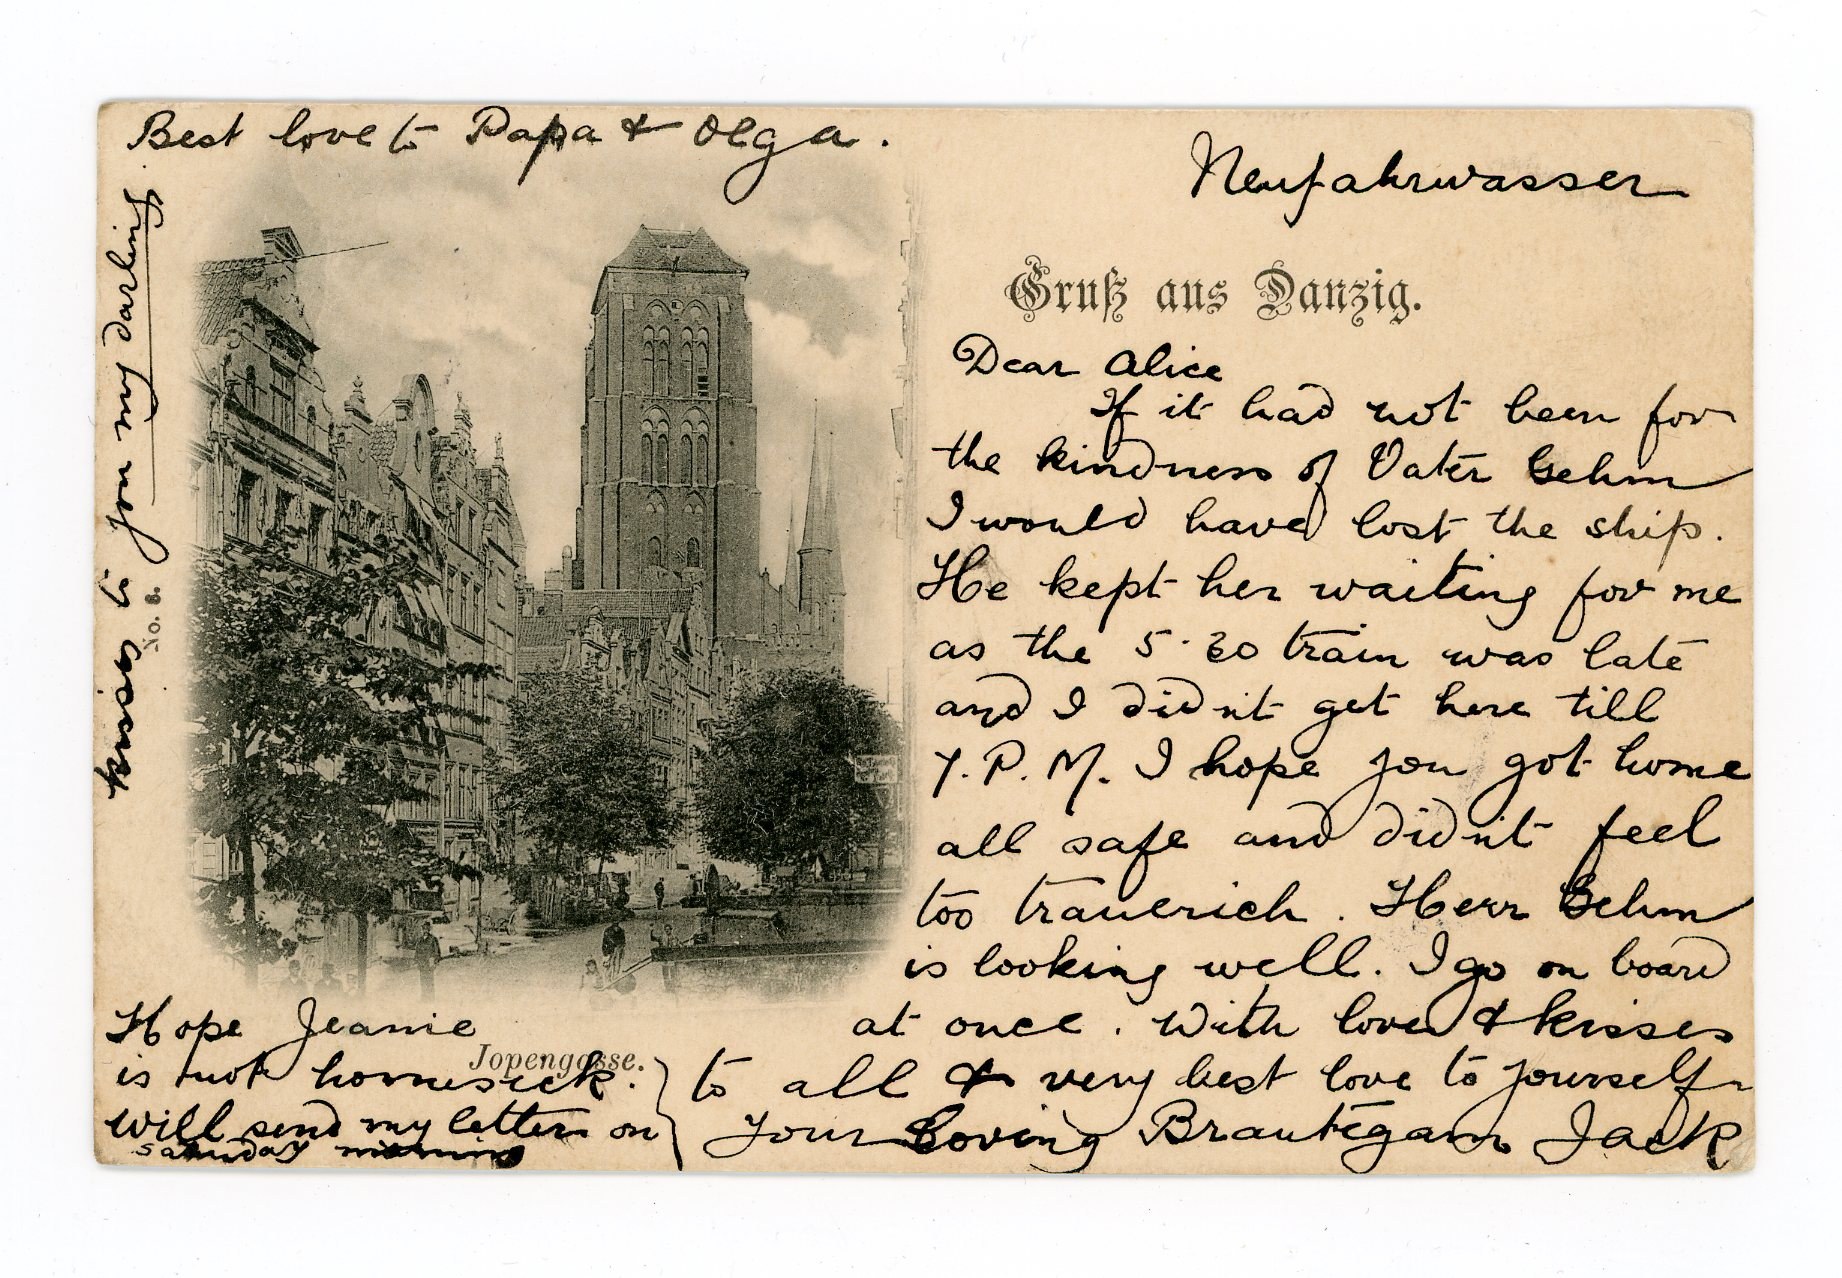 Best love to Papa & Olga.
Neufahrwasser
Gruß aus Danzig.
Dear Alice
If it had not been for
the kindness of Vater Gehm
I would have lost the ship.
He kept her waiting for me
as the 5.20 train was late
and I didn't get here till
7. P. M. I hope you got home
all safe and didn't feel
too trauerich. Herr Gehm
is looking well. I go on board
at once. With love & kisses
to all & very best love to yourself
Your loving Brautigam Jack
Hope Jeanie
is not homesick.
Will send my letter on
saturday morning
Jopengasse.
kisses to you my darling
No. 6.